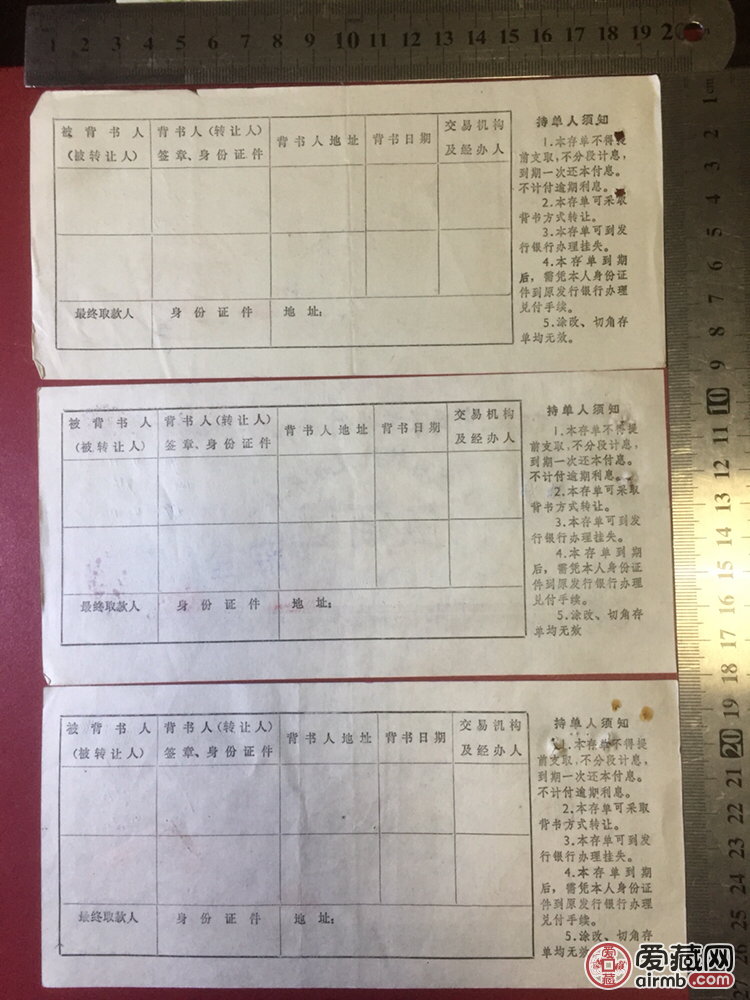 1 2 3 4 5 6 7 8 9 10 11 12 13 14 15 16 17 18 19 2
1 cm
2
3
4
5
6
7
8
9
10
11
12
13
14
15
16
17
18
19
20
21
22
23
24
25
被背书人
(被转让人)
背书人(转让人)
签章、身份证件
背书人地址
背书日期
交易机构
及经办人
最终取款人
身份证件
地址:
持单人须知
1.本存单不得提
前支取,不分段计息,
到期一次还本付息。
不计付逾期利息。
2.本存单可采取
背书方式转让。
3.本存单可到发
行银行办理挂失。
4.本存单到期
后,需凭本人身份证
件到原发行银行办理
兑付手续。
5.涂改、切角存
单均无效。
被背书人
(被转让人)
背书人(转让人)
签章、身份证件
背书人地址
背书日期
交易机构
及经办人
最终取款人
身份证件
地址:
持单人须知
1.本存单不得提
前支取,不分段计息,
到期一次还本付息。
不计付逾期利息。
2.本存单可采取
背书方式转让。
3.本存单可到发
行银行办理挂失。
4.本存单到期
后,需凭本人身份证
件到原发行银行办理
兑付手续。
5.涂改、切角存
单均无效
被背书人
(被转让人)
背书人(转让人)
签章、身份证件
背书人地址
背书日期
交易机构
及经办人
最终取款人
身份证件
地址:
持单人须知
1.本存单不得提
前支取,不分段计息,
到期一次还本付息。
不计付逾期利息。
2.本存单可采取
背书方式转让。
3.本存单可到发
行银行办理挂失。
4.本存单到期
后,需凭本人身份证
件到原发行银行办理
兑付手续。
5.涂改、切角存
单均无效
爱藏网
airmb.com